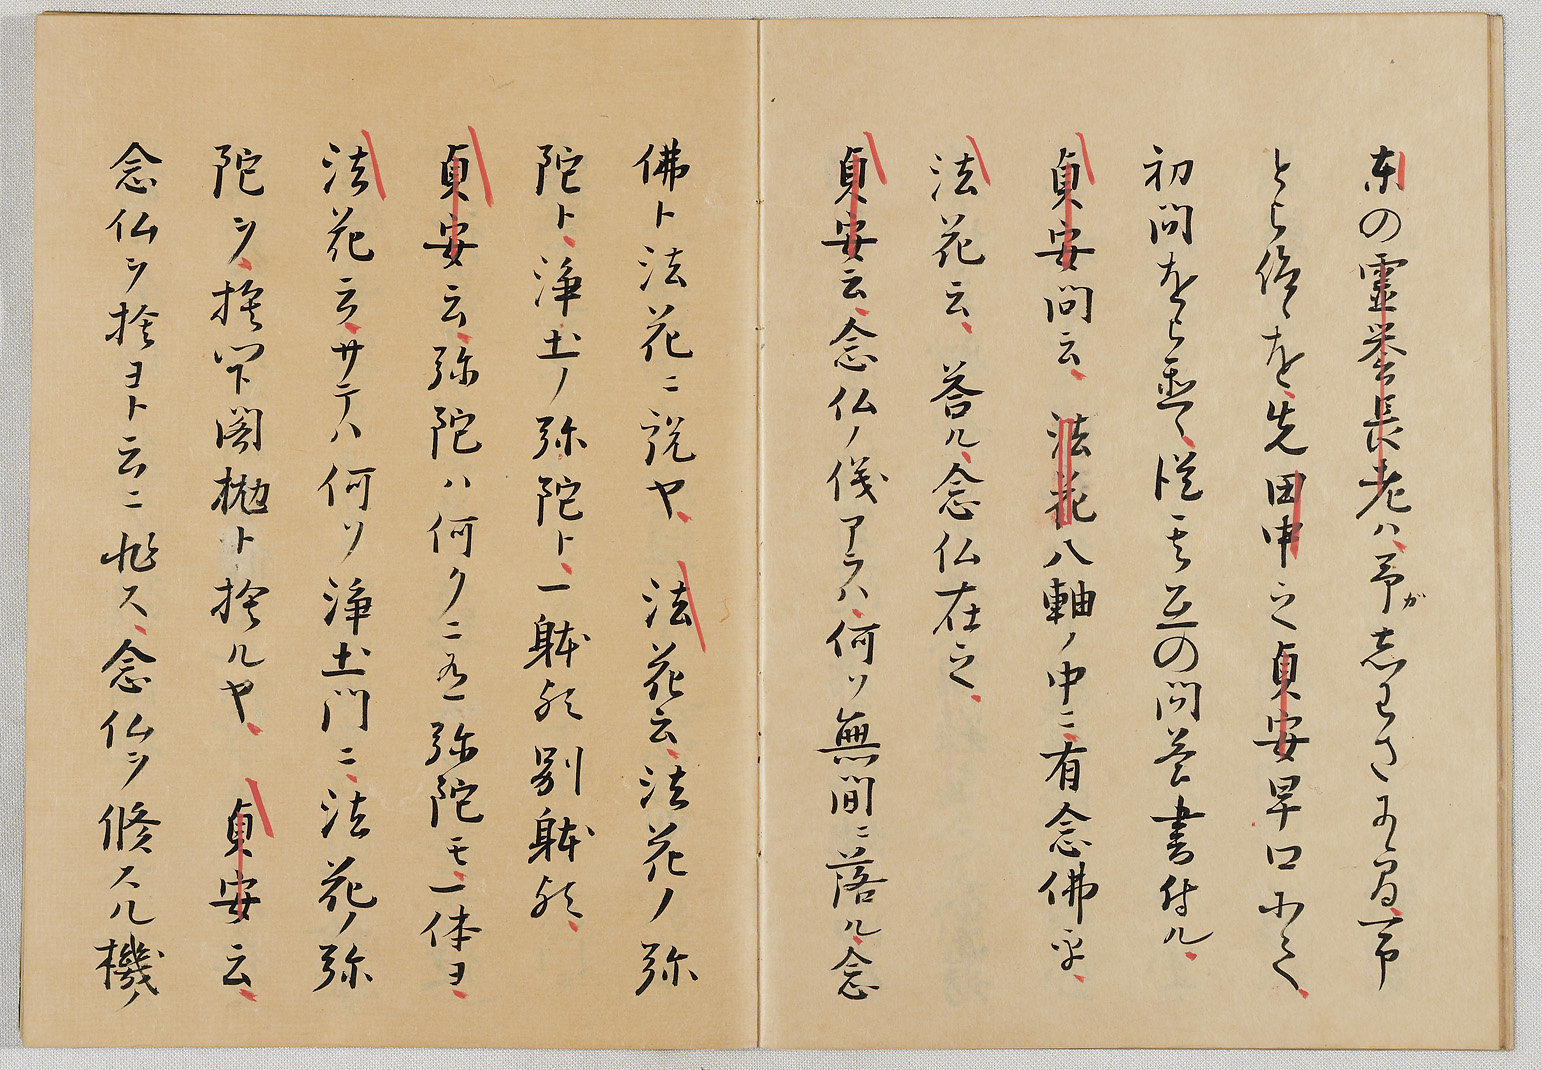 東の霊誉長老ハ、予が
を、先田中之貞安早口にて、
初問を従其互の問答書付ル、
貞安問云、法花八軸ノ中ニ、有念佛乎、
法花云、答ル、念仏在之、
貞安云、念仏ノ儀アラハ、何ソ無間ニ落ル、念
佛ト法花ニ説ヤ、法花云、法花ノ弥
陀ト、浄土ノ弥陀ト、一躰歟別躰歟、
貞安云、弥陀ハ何クニ有弥陀モ、一体ヨ、
法花云、サテハ何ソ浄土門ニ、法花ノ弥
陀ヲ、捨閉閣抛ト捨ルヤ、貞安云、
念仏ヲ捨ヨト云ニ非ス、念仏ヲ修スル機ノ